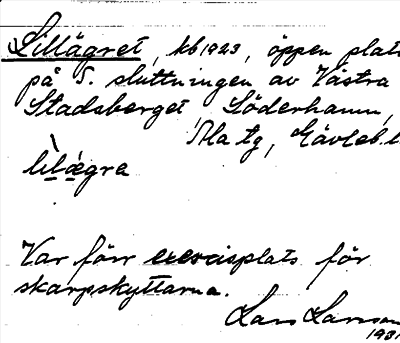 Lillägret, kb 1923, öppen plats
på S. sluttningen av Västra
Stadsberget Söderhamn,
Ala tg, Gävleb. l.
lìlægra
Var förr exercisplats för
skarpskyttarna.
Lars Larsson
1931